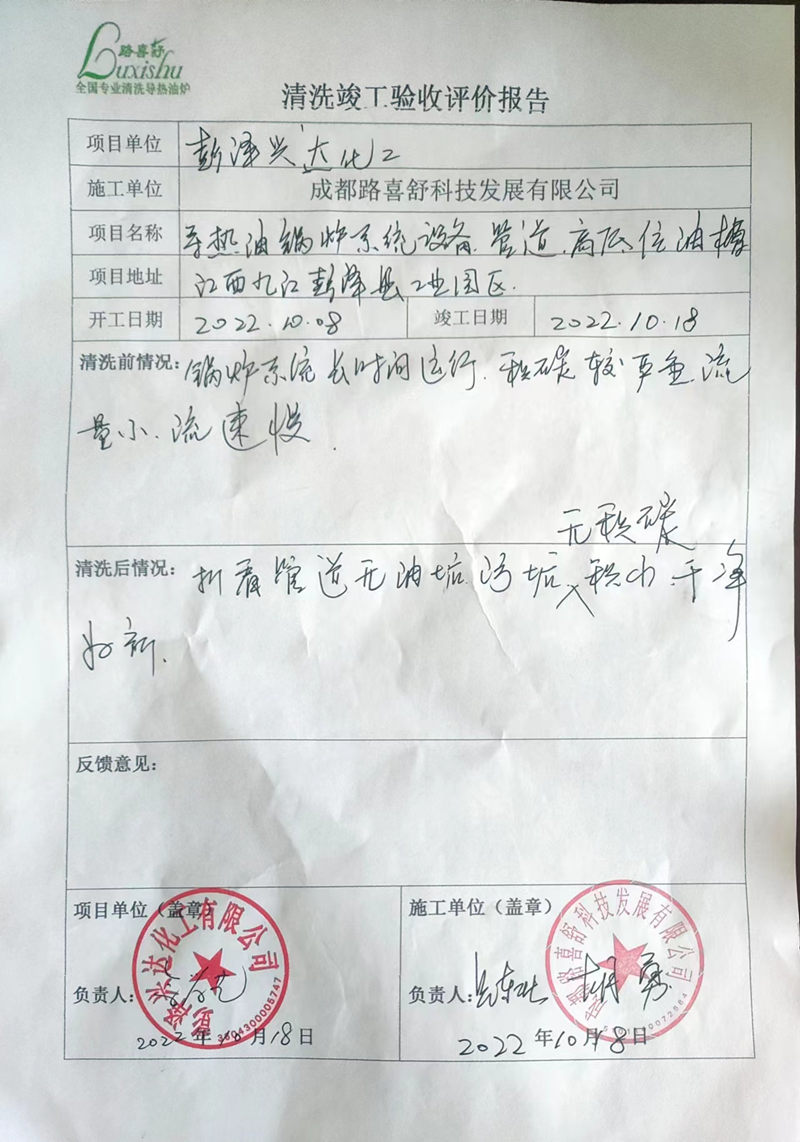 路喜舒
Luxishu
全国专业清洗导热油炉
清洗竣工验收评价报告
项目单位 彭泽兴达化工
施工单位 成都路喜舒科技发展有限公司
项目名称 导热油锅炉系统设备.管道.高低位油槽
项目地址 江西九江彭泽县工业园区.
开工日期 2022.10.08 竣工日期 2022.10.18
清洗前情况: 锅炉系统长时间运行.积碳较严重.流
量小.流速慢.
无积碳
清洗后情况: 拆看管道无油垢.污垢 干净
如新.
反馈意见:
项目单位（盖章）
施工单位（盖章）
彭泽兴达化工有限公司
3604300005747
成都路喜舒科技发展有限公司
负责人:
负责人: 胡勇
2022年10月18日
2022年10月18日